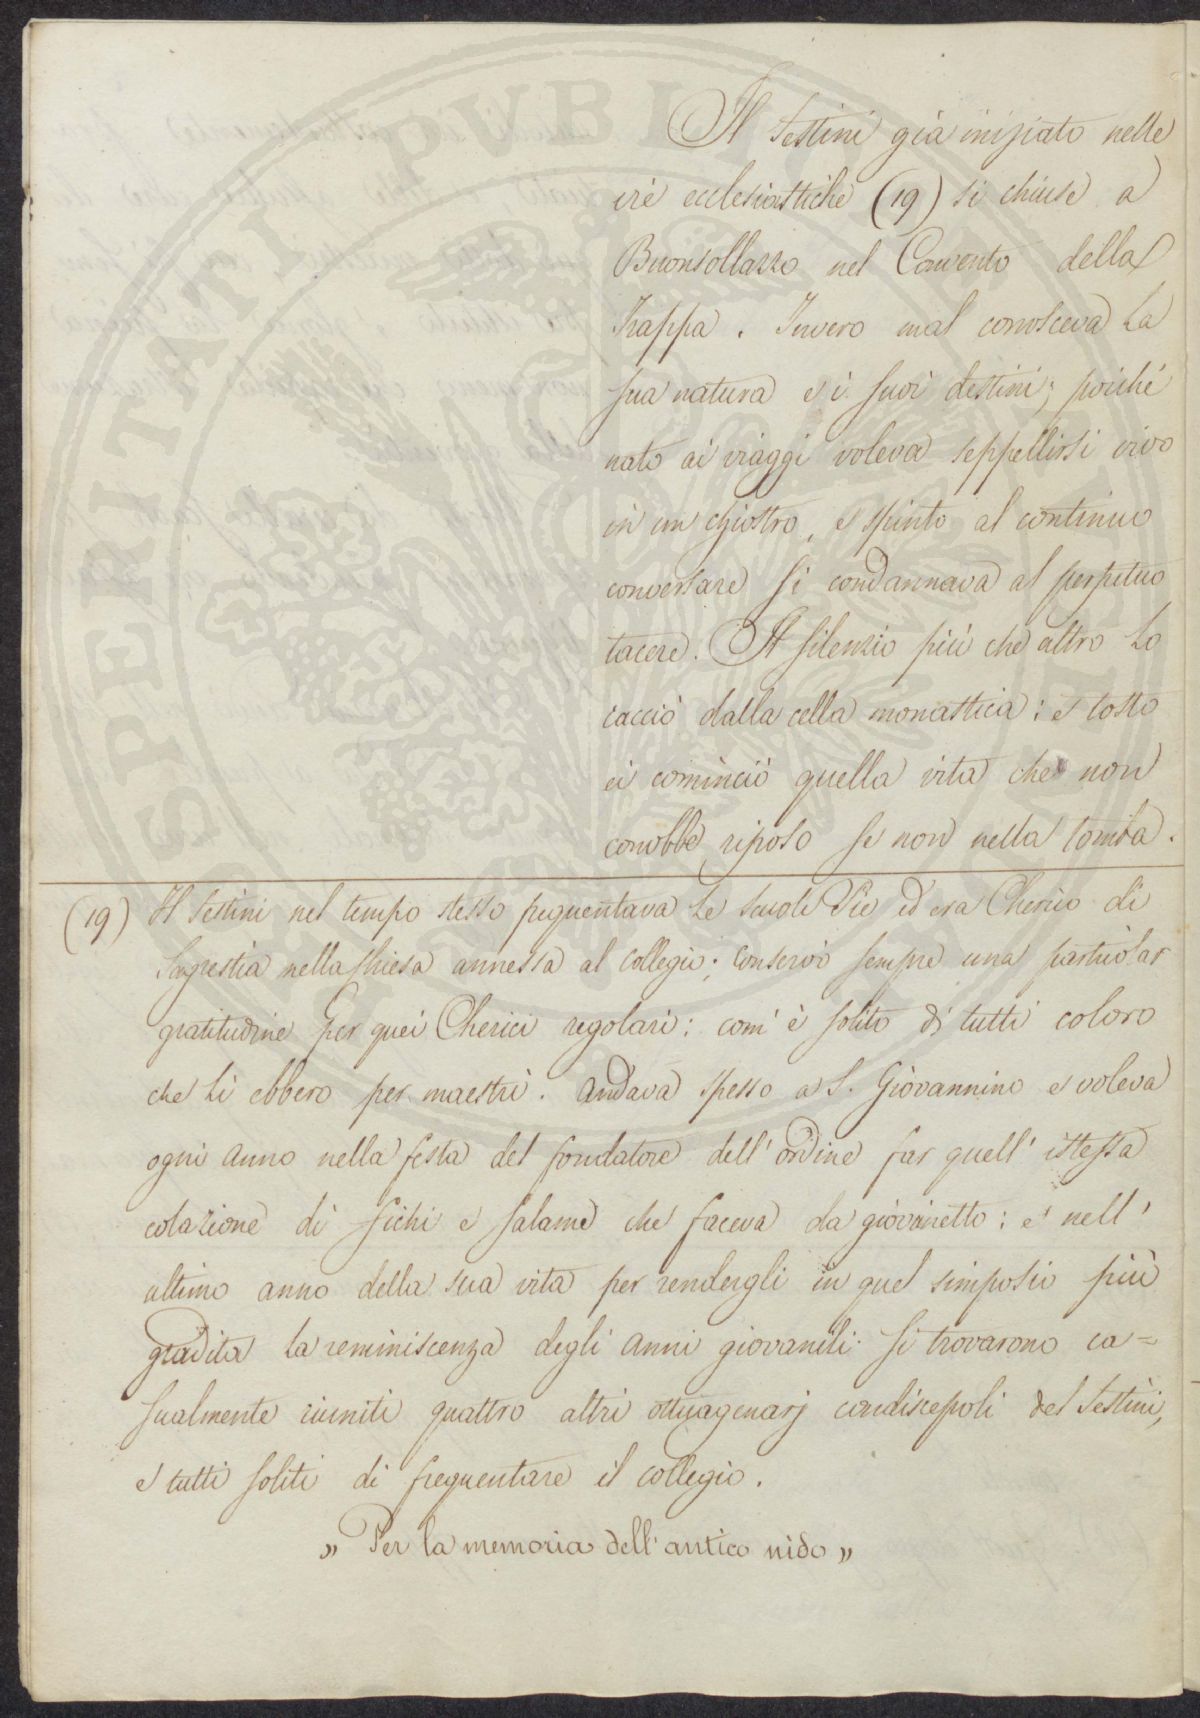 Il Sestini già iniziato nelle
vie ecclesiastiche (19) si chiuse a
Buonsollazzo nel Convento della
Trappa. Invero mal conosceva la
sua natura e i suoi destini; poiché
nato ai viaggi voleva seppellirsi vivo
in un chiostro, e spinto al continuo
conversare si condannava al perpetuo
tacere. Il silenzio più che altro lo
cacciò dalla cella monastica: e tosto
ei cominciò quella vita che non
conobbe riposo se non nella tomba.
(19) Il Sestini nel tempo stesso frequentava le Scuole Pie ed era Cherico di
Sagrestia nella Chiesa annessa al Collegio; conservò sempre una particolar
gratitudine per quei Cherici regolari: com' è solito di tutti coloro
che li ebbero per maestri. Andava spesso a S. Giovannino e voleva
ogni anno nella festa del fondatore dell' ordine far quell' istessa
colazione di fichi e salame che faceva da giovinetto: e nell'
ultimo anno della sua vita per rendergli in quel simposio più
gradita la reminiscenza degli anni giovanili si trovarono ca=
sualmente riuniti quattro altri ottuagenarj condiscepoli del Sestini,
e tutti soliti di frequentare il collegio.
„ Per la memoria dell' antico nido „
PERITATI PUBLICAE